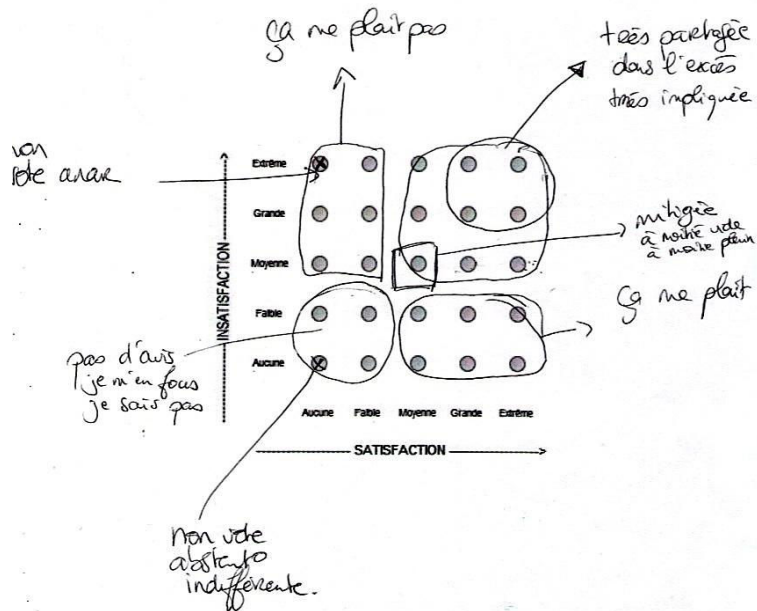 ça me plait pas
très partagée
dans l'excès
très impliquée
non
vote anar
Extrême
Grande
Moyenne
Faible
Aucune
INSATISFACTION
mitigée
à moitié vide
à moitié plein
ça me plait
pas d'avis
je m'en fous
je sais pas
Aucune Faible Moyenne Grande Extrême
SATISFACTION
non vote
abstento
indifférente.